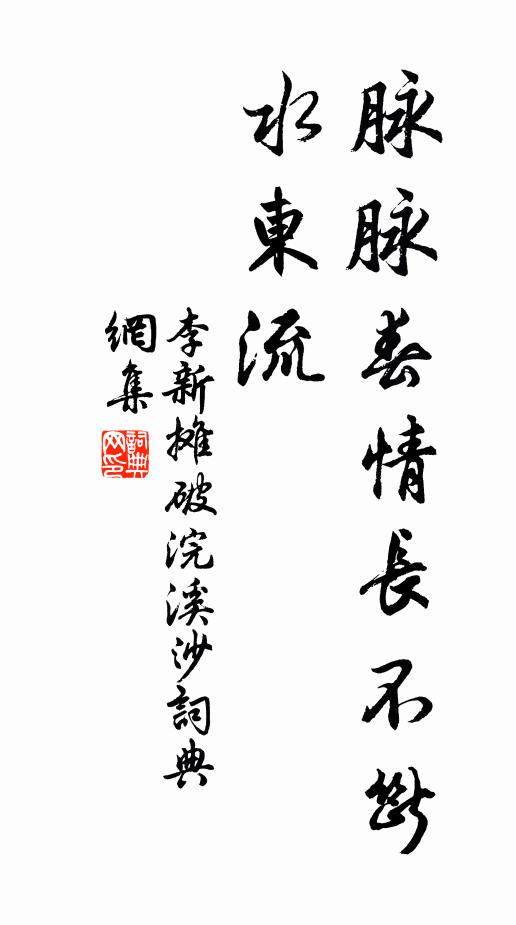 脉脉春情長不斷
水東流
李新攤破浣溪沙詞典
網集
詞典
网印